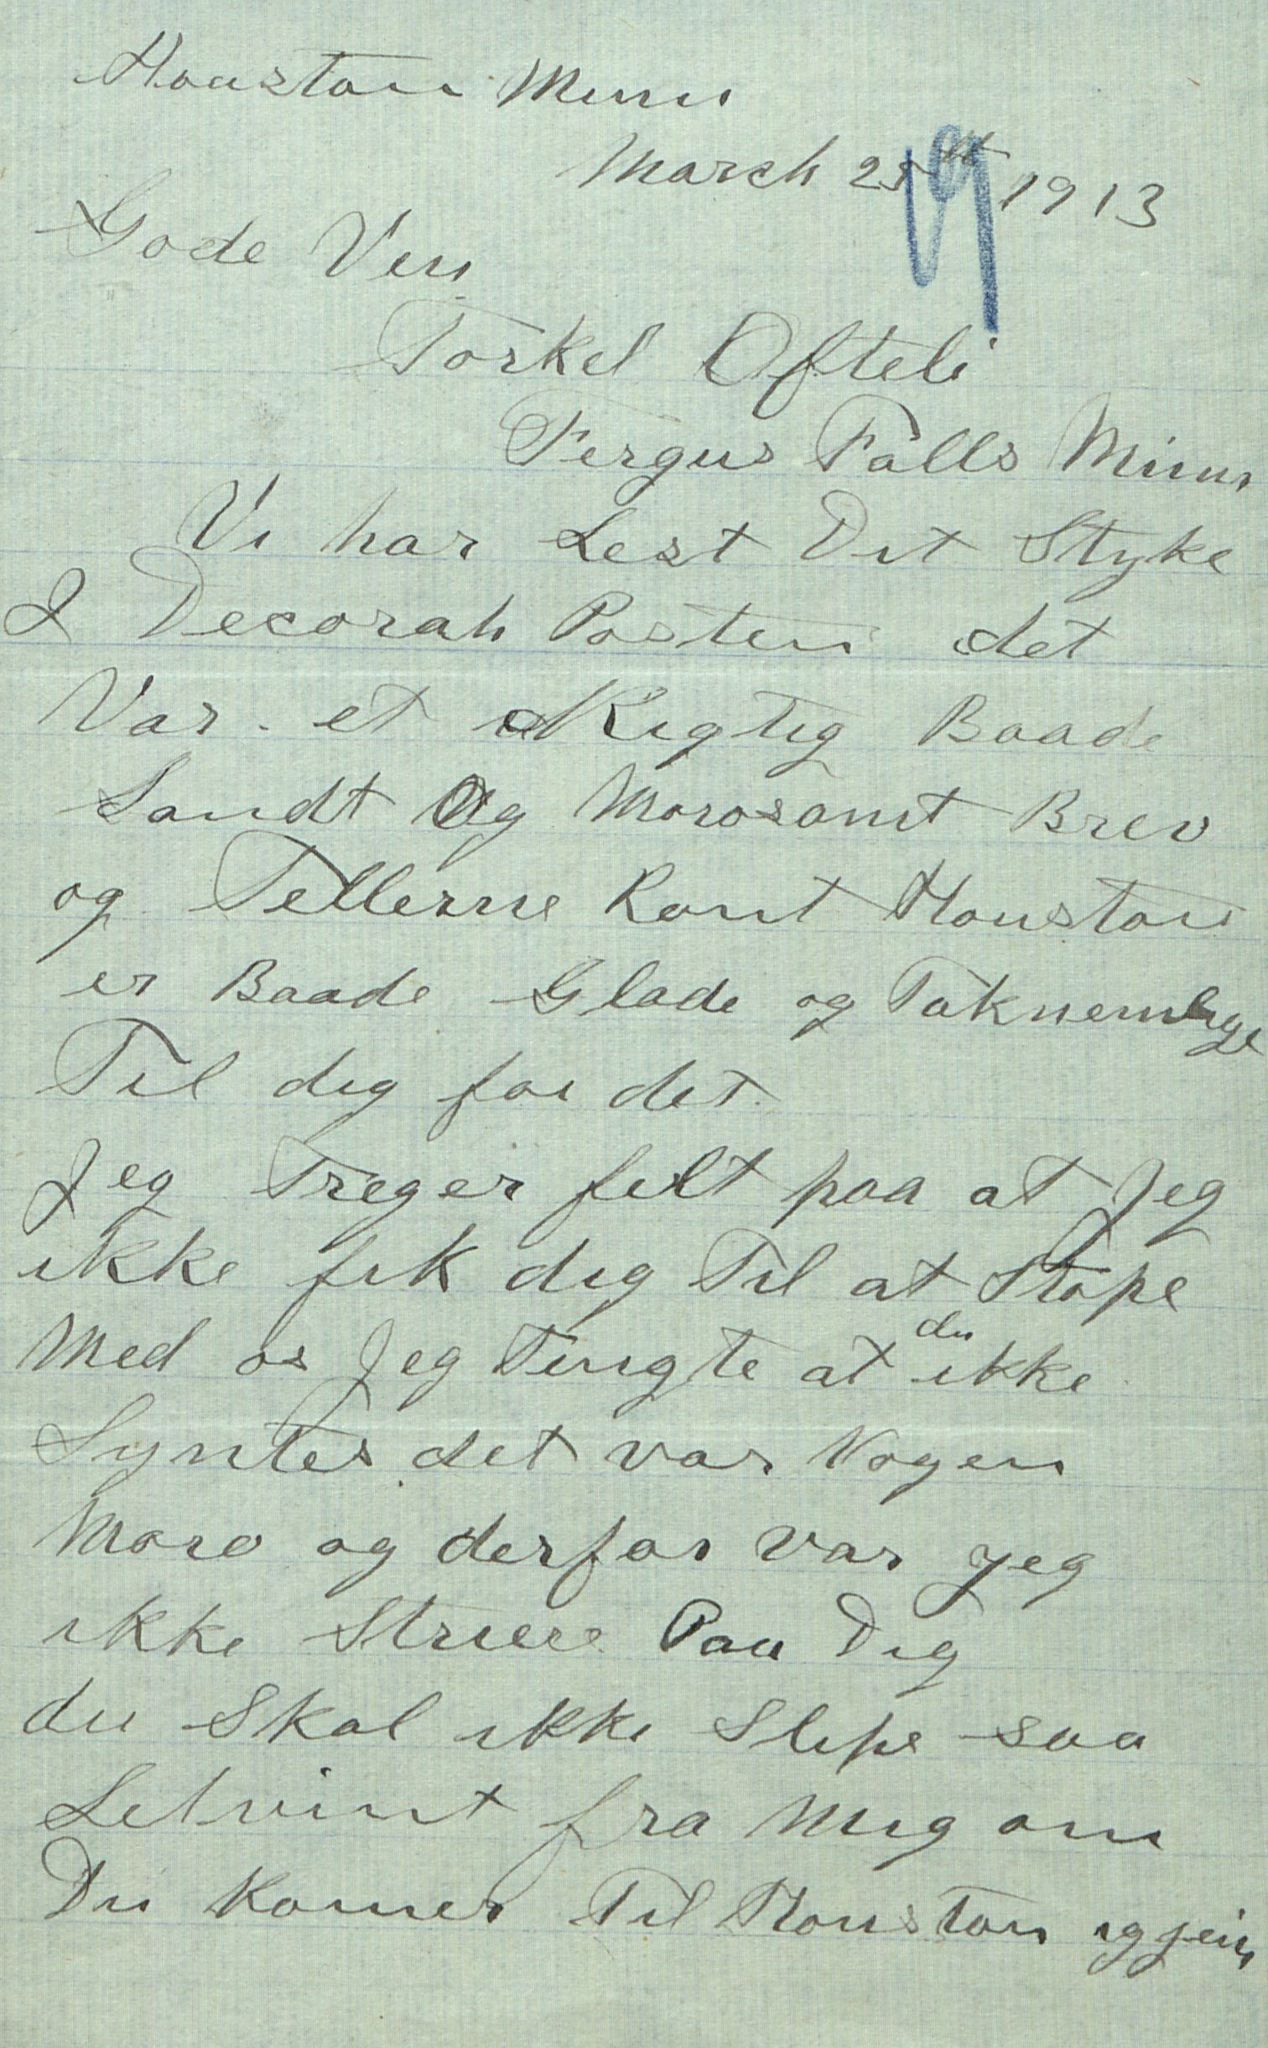 Houston Minn
March 25th 1913
Gode Ven
Torkel Ofteli
Fergus Falls Minn
Vi har Lest Dit Styke
I Decorah Posten det
Var et Rigtig Baade
Sandt Og Morosomt Brev
og Tellerne Romt Houston
er Baade Glade og Taknemlige
Til dig for det.
Jeg Treger felt paa at Jeg
ikke fik dig Til at Stope
Med os Jeg Tingte at du ikke
Syntes det var Nogen
Moro og derfor var jeg
ikke Striere Paa Dig
du Skal ikke Slipe saa
Letvint fra Mig om
Du Komer Til Houston iggjein